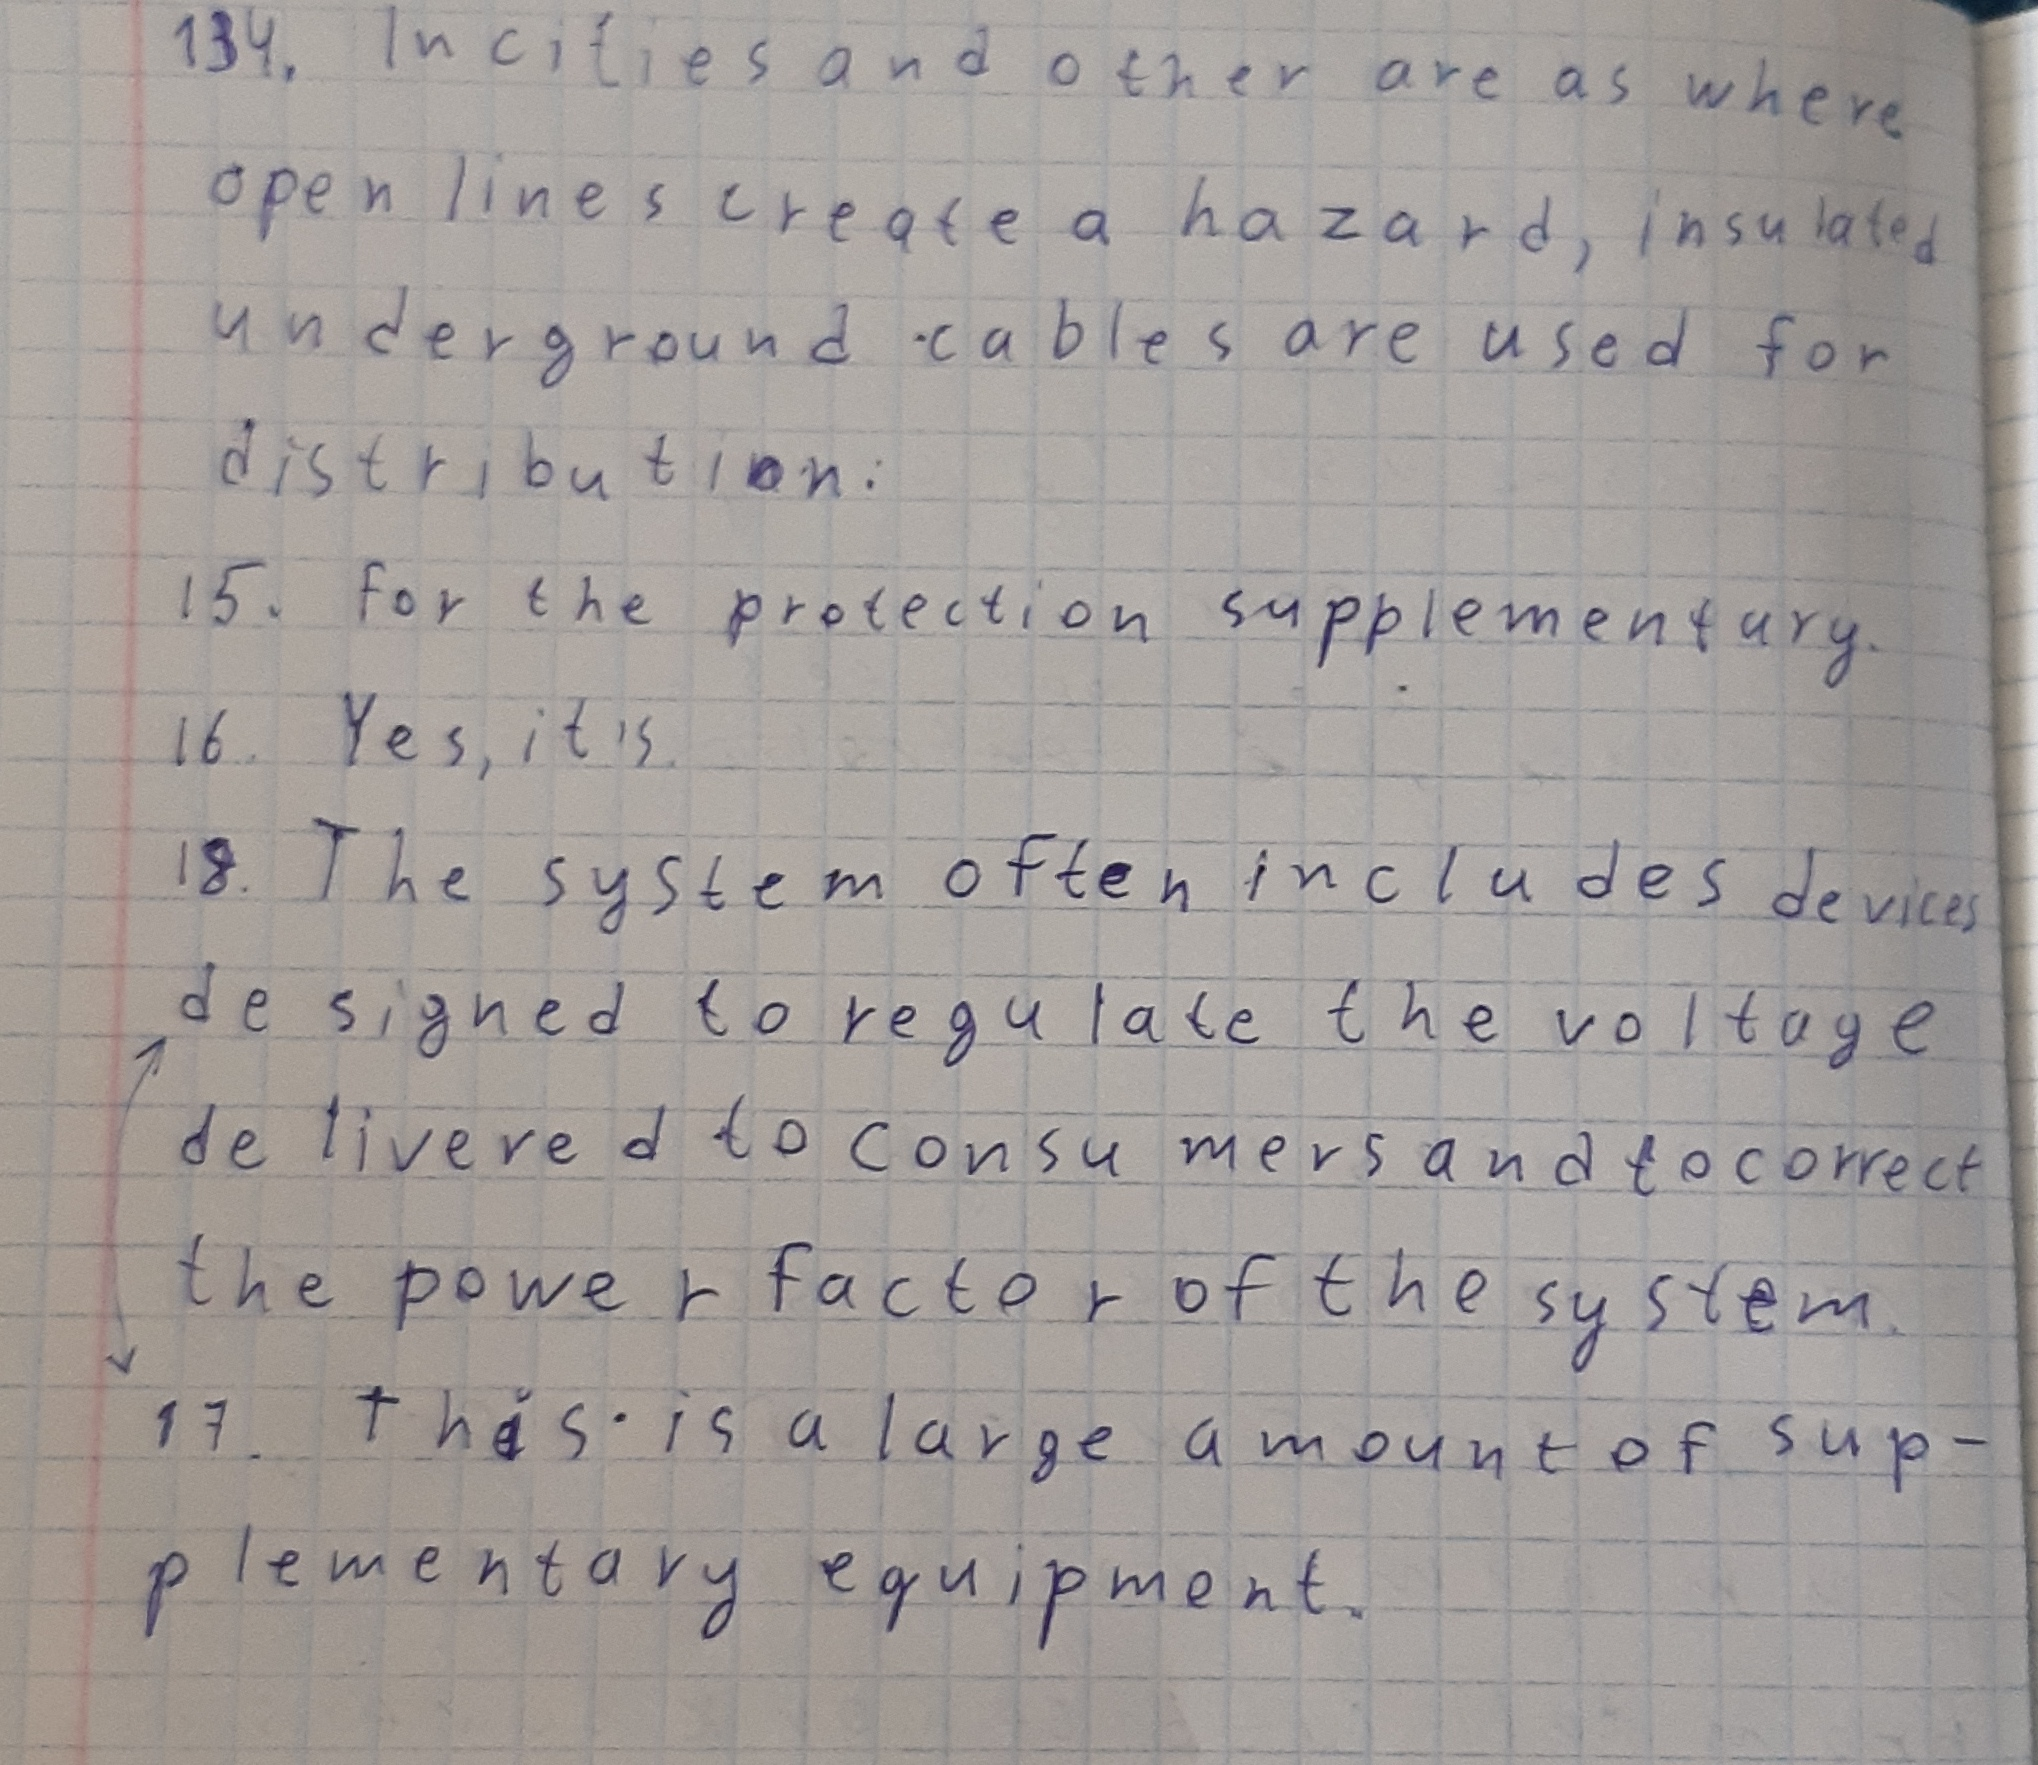 134. In cities and other are as where
open lines create a hazard, insulated
underground cables are used for
distribution.
15. for the protection supplementary.
16. Yes, it is.
18. The system often includes devices
designed to regulate the voltage
delivered to consumers and to correct
the power factor of the system.
17. This is a large amount of sup-
plementary equipment.